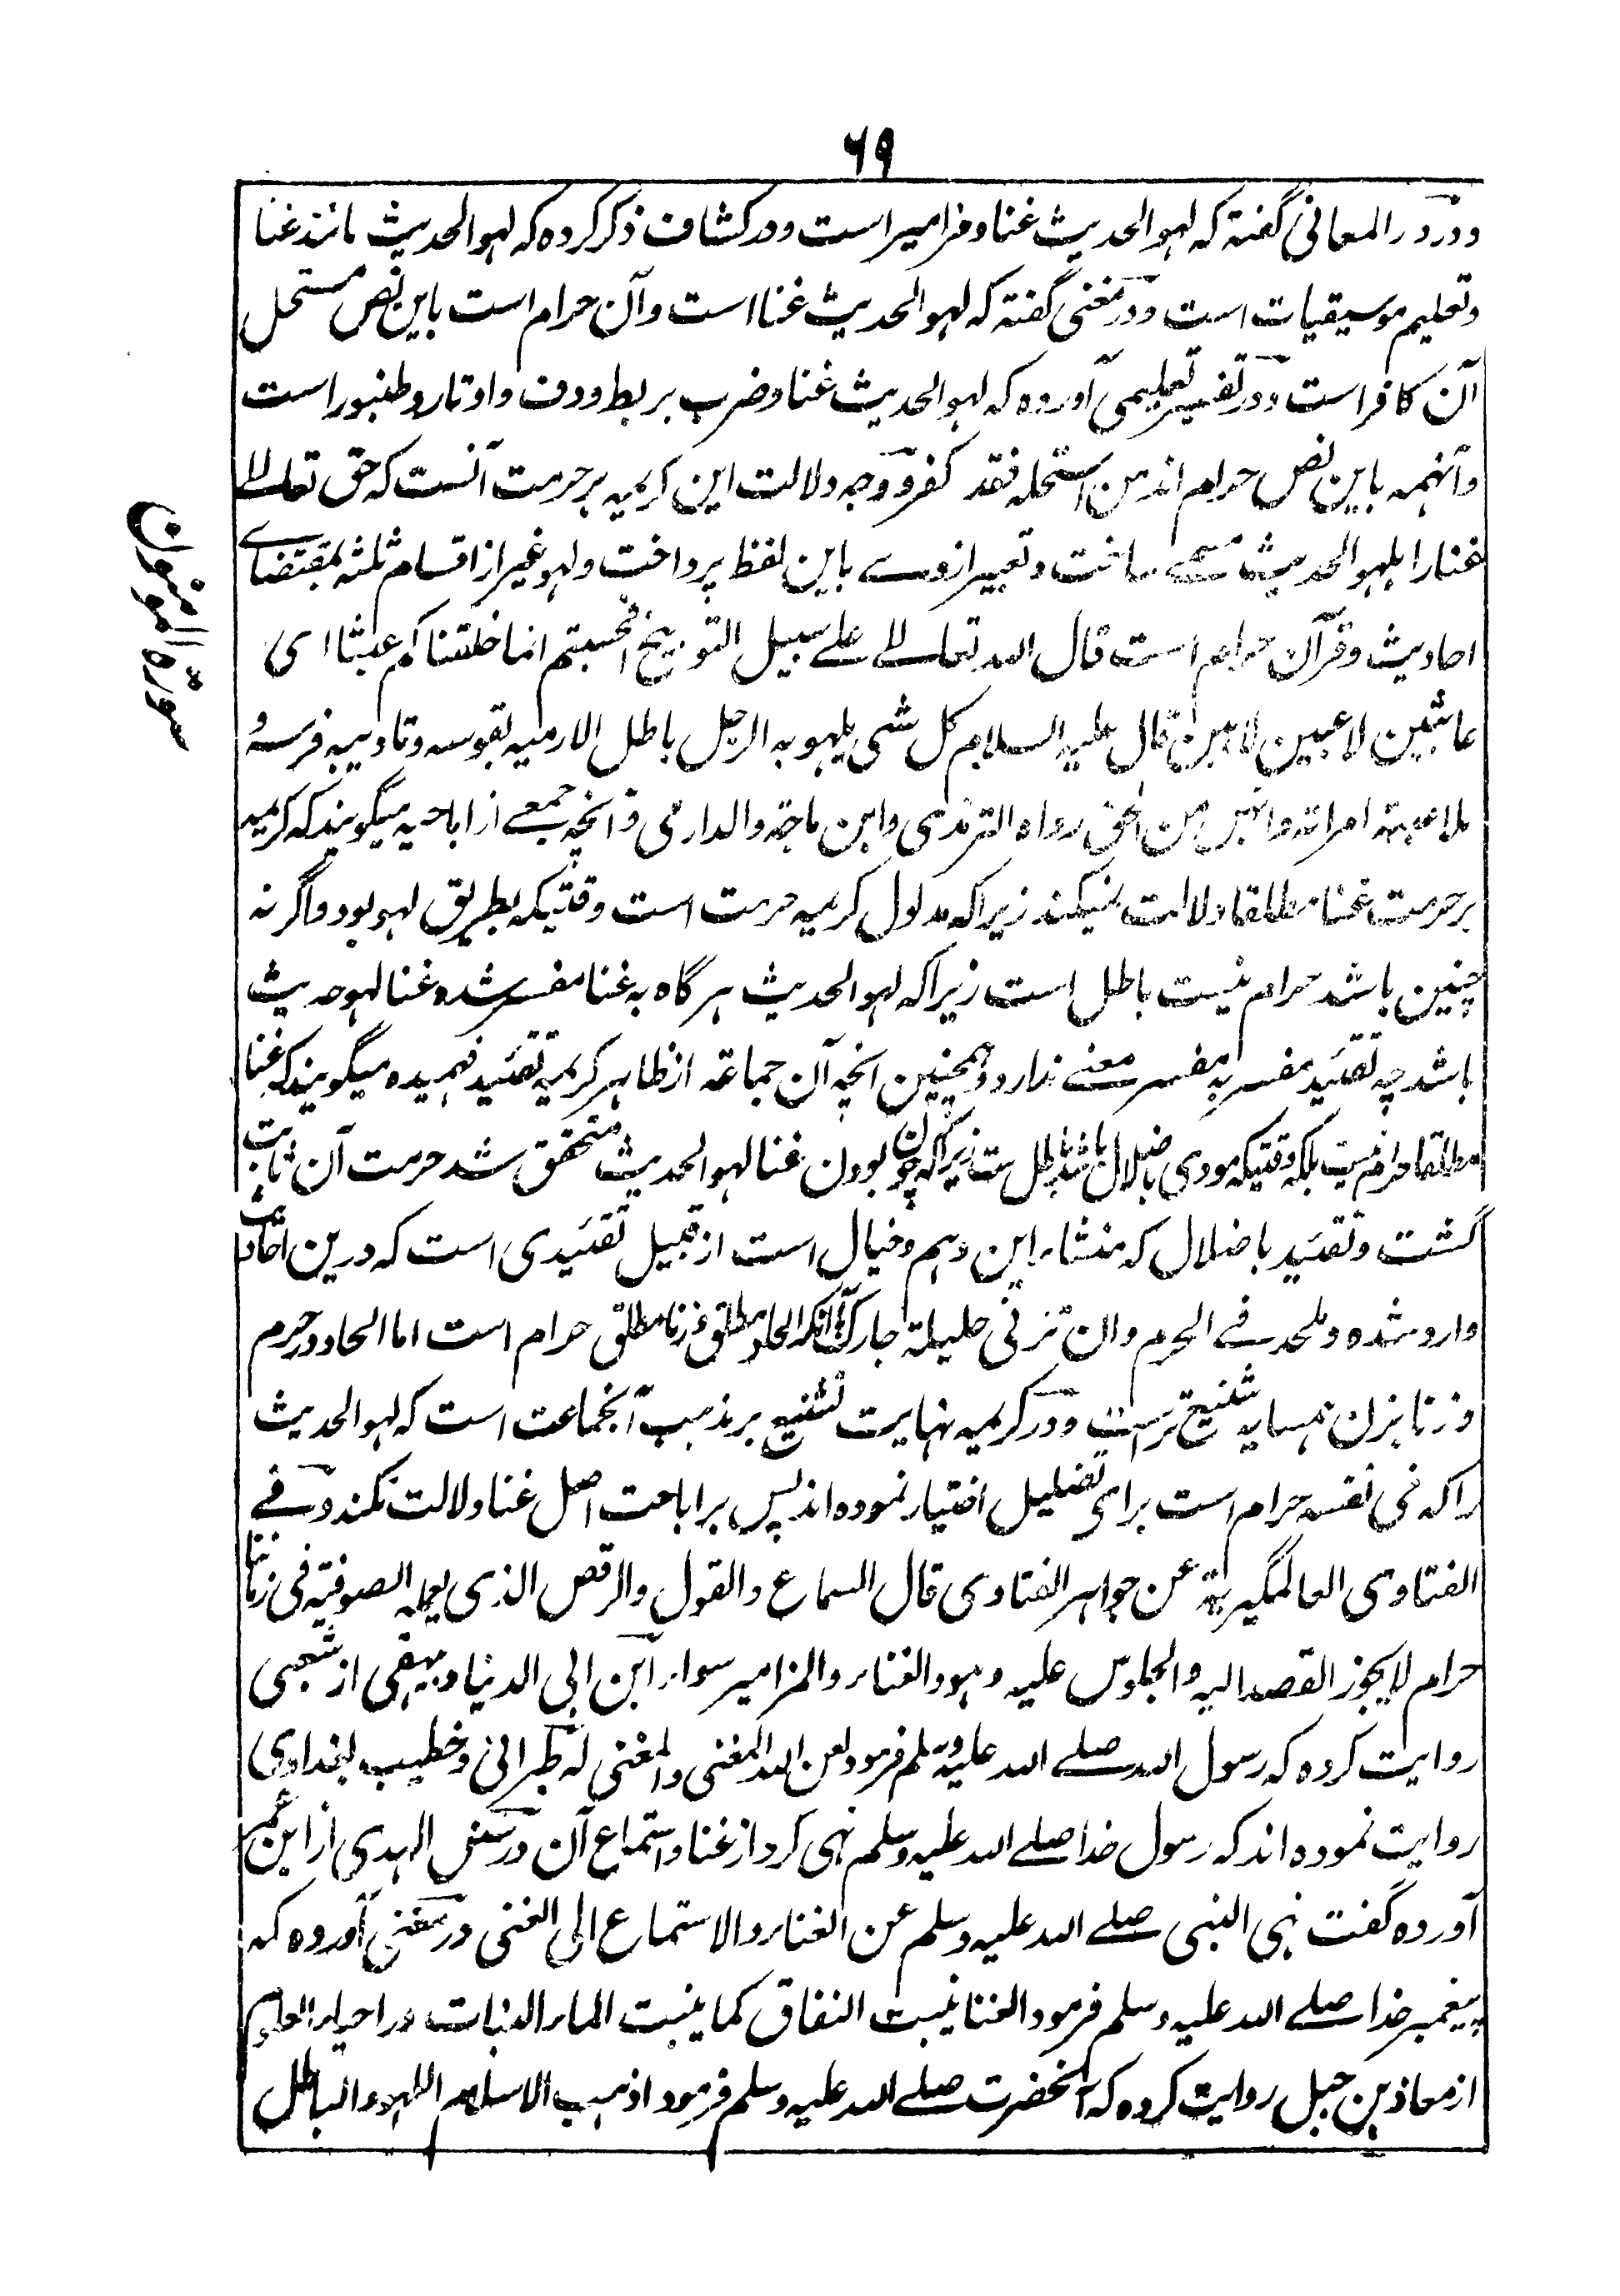 ۶۹
ودر در المعانی گفته که لهو الحدیث غنا و مزامیر است ودر کشاف ذکر کرده که لهو الحدیث مانند غنا
وتعلیم موسیقیات است ودر مغنی گفته که لهو الحدیث غنا است وآن حرام است باین نص مستحل
آن کافر است ودر تفسیر تعلیمی آورده که لهو الحدیث غنا وضرب بربط ودف واوتار وطنبور است
وآنهمه باین نص حرام اند من استحله فقد کفر ووجه دلالت این کریمه بر حرمت آنست که حق تعالے
غنا را بلهو الحدیث مسمے ساخت وتعبیر ازوے باین لفظ پرداخت ولهو غیر از اقسام ثلثه بمقتضاے
احادیث وقرآن حرام است قال الله تعالے علے سبیل التوبیخ افحسبتم انما خلقناکم عبثا ای
عابثین لاعبین لاهین قال علیه السلام کل شی یلهو به الرجل باطل الا رمیه بقوسه وتادیبه فرسه و
ملاعبته امراته وانهن من الحق رواه الترمذی وابن ماجه والدارمی وآنچه جمعے از اباحیه میگویند که کریمه
بر حرمت غنا مطلقا دلالت نمیکند زیراکه مدلول کریمه حرمت است وقتیکه بطریق لهو بود واگر نه
چنین باشد حرام نیست باطل است زیراکه لهو الحدیث هر گاه به غنا مفسر شد وغنا لهو حدیث
باشد چه تقئید مفسر به مفسر معنے ندارد وهمچنین آنچه آن جماعة از ظاهر کریمه تقئید فهمیده میگویند که غنا
مطلقا حرام نیست بلکه وقتیکه مودی باضلال باشد باطل ست زیراکه چون بودن غنا لهو الحدیث متحقق شد حرمت آن ثابت
گشت وتقئید باضلال که منشاء این وهم وخیال است از قبیل تقئیدی است که درین احادیث
وارد شده وملحد فے الحرم وان تزنی حلیلة جارک بآنکه الحاد مطلق وزنا مطلق حرام است اما الحاد در حرم
وزنا بزن همسایه شنیع تر است ودر کریمه نهایت تشنیع بر مذهب آنجماعت است که لهو الحدیث
را که فی نفسه حرام است برای تضلیل اختیار نموده اند پس بر اباحت اصل غنا دلالت نکند وفے
الفتاوی العالمگیریة عن جواهر الفتاوی قال السماع والقول والرقص الذی یفعله الصوفیة فی زماننا
حرام لا یجوز القصد الیه والجلوس علیه وهو والغناء والمزامیر سواء ابن ابی الدنیا وبیهقی از شعبی
روایت کرده که رسول الله صلے الله علیه وسلم فرمود لعن الله المغنی والمغنی له طبرانی وخطیب بغدادی
روایت نموده اند که رسول خدا صلے الله علیه وسلم نهی کرد از غنا واستماع آن در سنن الهدی از ابن عمر
آورده گفت نهی النبی صلے الله علیه وسلم عن الغناء والاستماع الی الغنی در مغنی آورده که
پیغمبر خدا صلے الله علیه وسلم فرمود الغنا ینبت النفاق کما ینبت الماء النبات در احیاء العلوم
از معاذ بن جبل روایت کرده که آنحضرت صلے الله علیه وسلم فرمود اذهب الاسلام اللهو والباطل
سورة المومنون